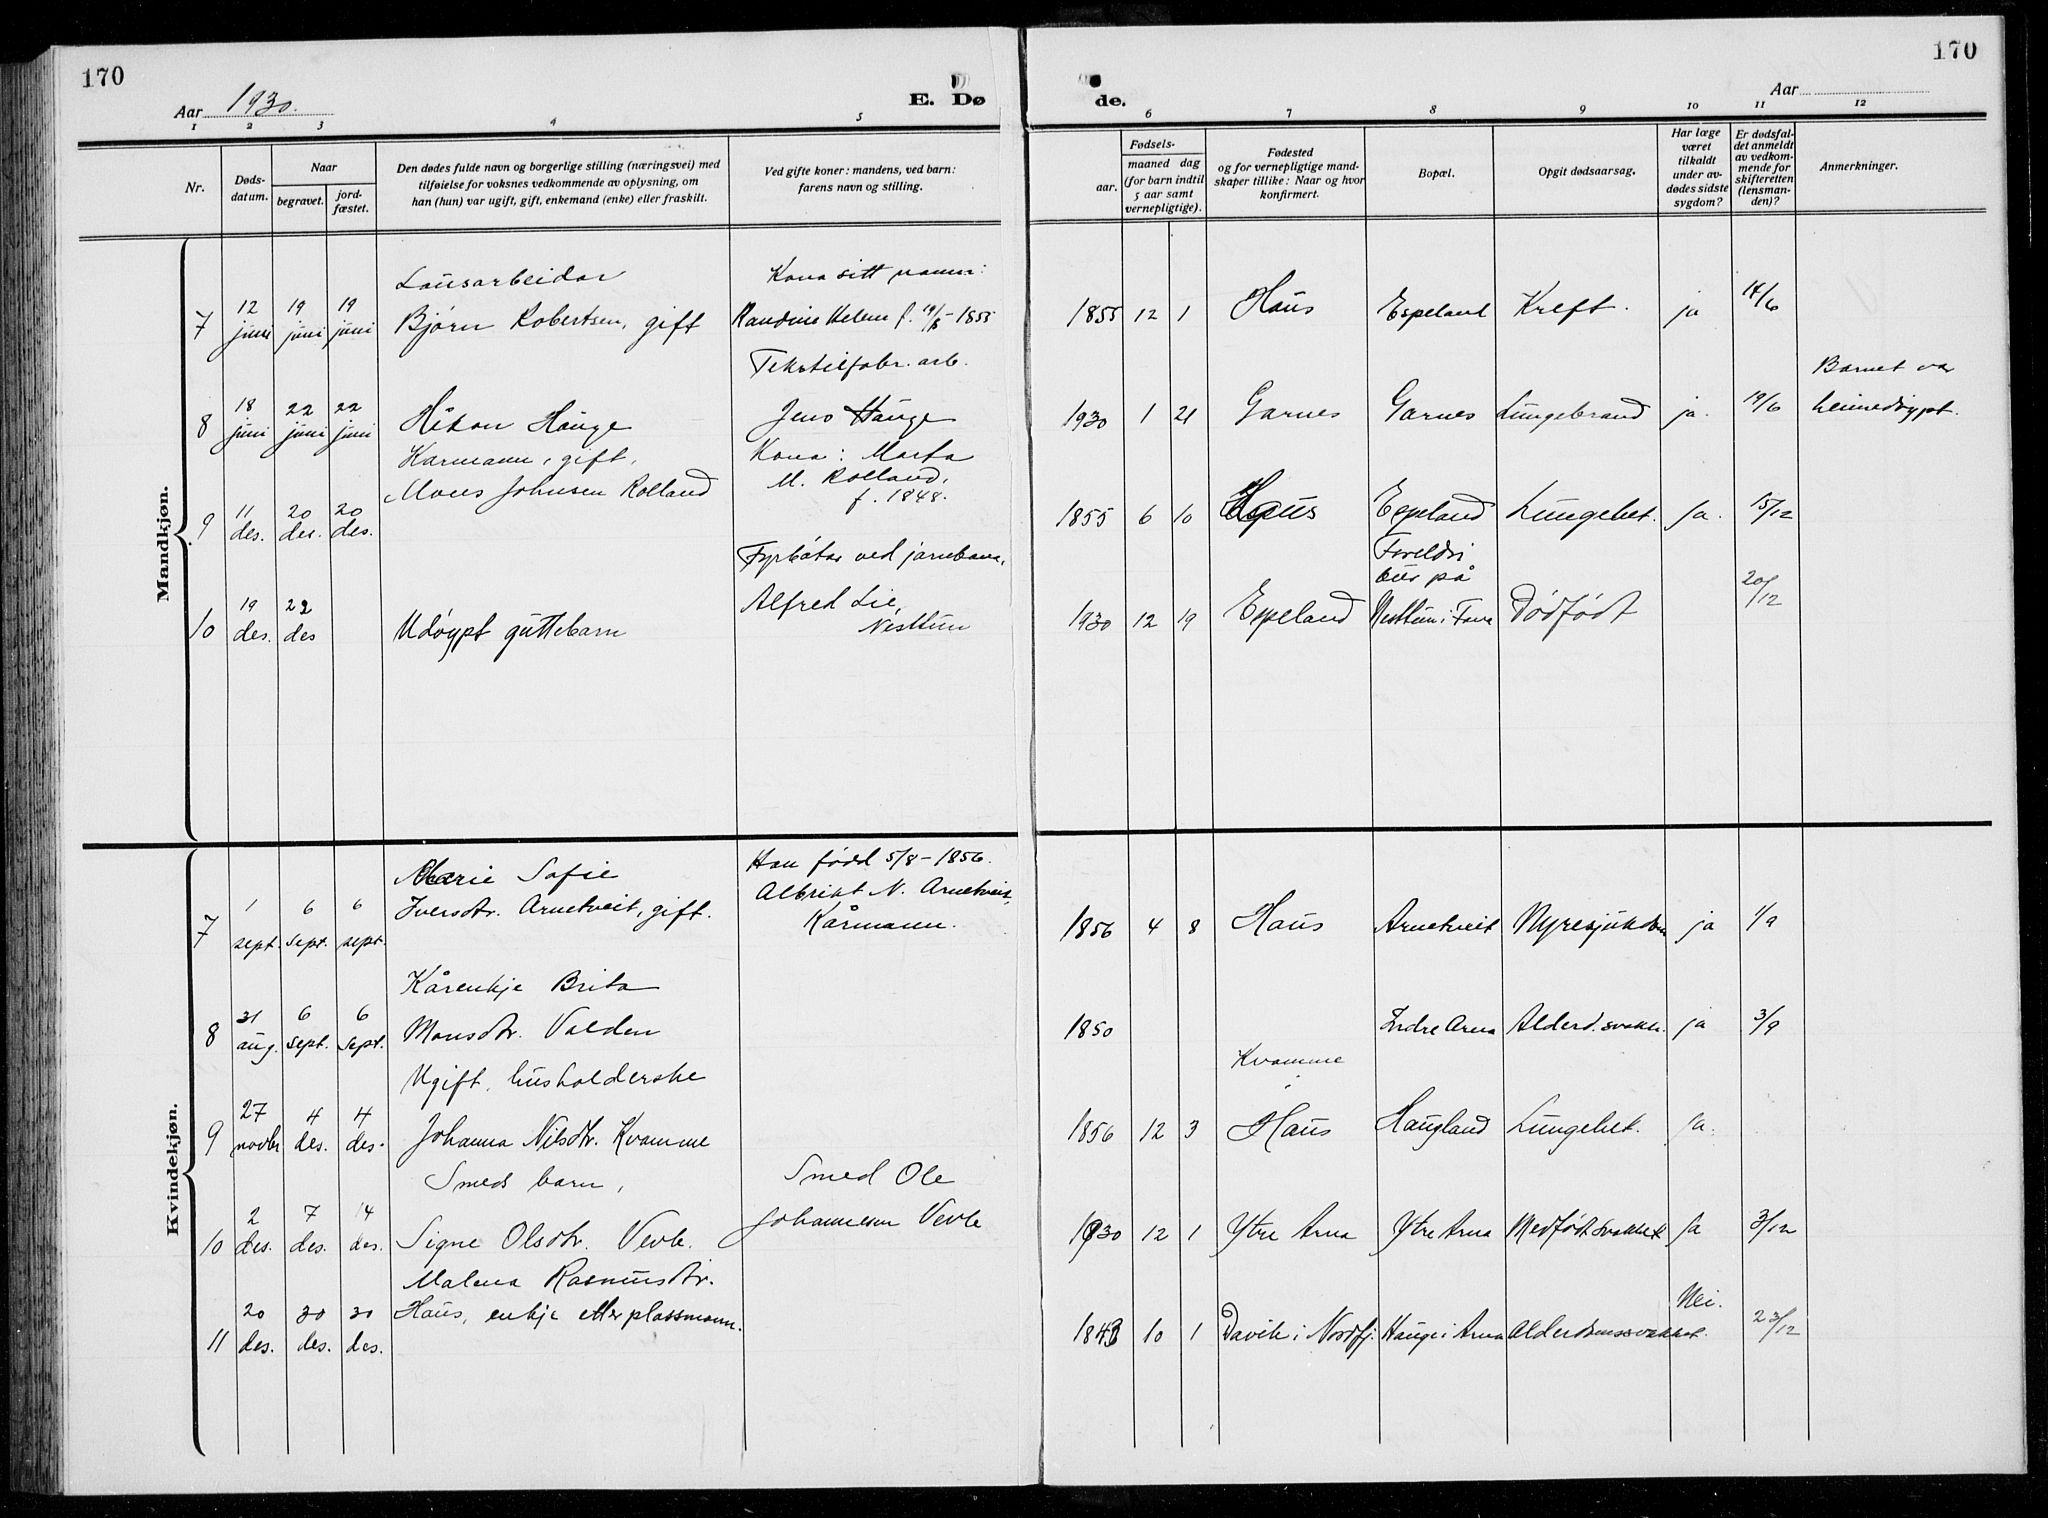 170
Aar 1930.
E. Dø
1 2 3 4 5
Nr.
Døds-
datum.
Naar
begravet.
jord-
fæstet.
Den dødes fulde navn og borgerlige stilling (næringsvei) med
tilføielse for voksnes vedkommende av oplysning, om
han (hun) var ugift, gift, enkemand (enke) eller fraskilt.
Ved gifte koner: mandens, ved barn:
farens navn og stilling.
170
Aar
de.
6 7 8 9 10 11 12
Fødsels-
aar.
maaned dag
(for barn indtil
5 aar samt
vernepligtige).
Fødested
og for vernepligtige mand-
skaper tillike: Naar og hvor
konfirmert.
Bopæl.
Opgit dødsaarsag.
Har læge
været
tilkaldt
under av-
dødes sidste
sygdom?
Er dødsfal-
det anmeldt
av vedkom-
mende for
skifteretten
(lensman-
den)?
Anmerkninger.
Mandkjøn.
Lausarbeidar Kona sitt namn:
7 12 juni 19 juni 19 juni Bjørn Robertsen, gift Randine Helene f. 19/8-1855 1855 12 1 Haus Espeland Kreft. ja 14/6
Tekstilfabr. arb. Barnet var
8 18 juni 22 juni 22 juni Håkon Hauge Jens Hauge 1930 1 21 Garnes Garnes Lungebrand ja. 19/6 heimedøypt.
Karmann, gift, Kona: Marta
Mons Johnsen Rolland M. Rolland,
f. 1848.
9 11 des. 20 des. 20 des. 1855 6 10 Haus Espeland Lungebet. Ja. 15/12
Fyrbøtar ved jarnbana, Foreldri
bur på
10 19 des. 22 des Udøypt guttebarn Alfred Lie, 1930 12 19 Espeland Nesttun i Fana Dødfødt 20/12
Nesttun
Kvindekjøn.
Marie Sofie Han fødd 5/8-1856.
7 1 sept. 6 sept. 6 sept. Iversdtr. Arnetveit, gift. Albrikt N. Arnetveit, 1856 4 8 Haus Arnetveit Nyresjukdom ja 1/9
Kårmann.
Kårenkje Brita
8 31 aug. 6 sept. 6 sept. Monsdtr. Valden 1850 Indre Arna Alderd. svakh. ja 3/9
Ugift, husholderske Kvamme
i
9 27 novbr 4 des. 4 des. Johanna Nilsdtr. Kvamme 1856 12 3 Haus Haugland Lungebet. Ja.
Smeds barn, Smed Ole
10 2 des. 7 des. 14 des. Signe Olsdtr. Vevle. Johannesen Vevle 1930 12 1 Ytre Arna Ytre Arna Medfødt svakhet Ja 3/12
Malena Rasmusdtr.
11 20 des. 30 des. 30 des. Haus, enkje etter plassmann. 1843 10 1 Davik i Nordfj. Hauge i Arna Alderdomssvakhet. Nei. 23/12